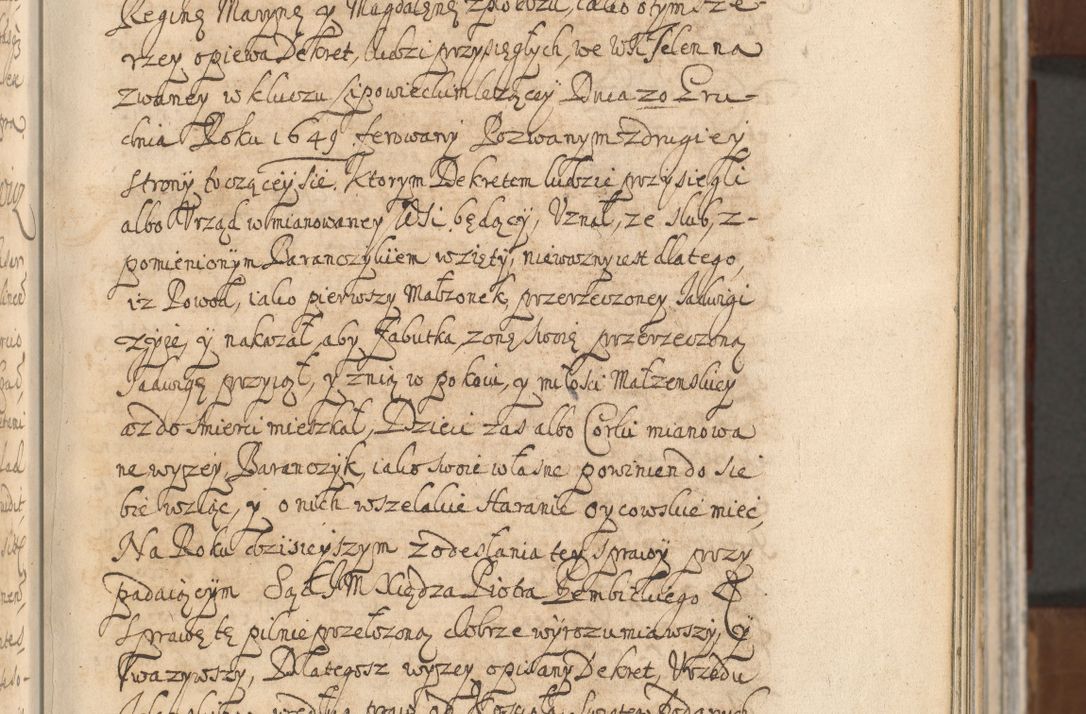 Reginę Marynę y Magdalenę
rzey opiewa Dekret, ludzi przysięgłych, we Wsi Jelen na
zwaney w kluczu Lipowieckim leżący Dnia 20 Gru-
dnia Roku 1649 ferowany Pozwanym z drugiey
strony toczącey się. Ktorym Dekretem ludzie przysięgli
albo Vrząd w mianowaney Wsi będący, Vznał, ze slub, z-
pomienionym Baranczykiem wzięty, niewazny iest dlatego,
iz Powod, iako pierwszy Małzonek, przerzeczoney Jadwigi
zyie, y nakazał, aby Jabutka zonę swoię przerzeczoną
Jadwigę przyiął, y znią w pokoiu, y miłosci Małzenskiey
az do smierci mieszkał, Dzieci zas albo Corki mianowa
ne wyzey, Baranczyk, iako swoie własne powinien do sie
bie wziąc, y o nich wszelakie staranie oycowskie miec,
Na Roku dzisieyszym z odesłania tey sprawy przy
padaiącym Sąd JM Xiędza Piotra Gembickiego
Sprawę tę pilnie przełozoną dobrze wyrozumiawszy, y
vwazywszy, Dlategosz wyzey opisany Dekret, Vrzędu